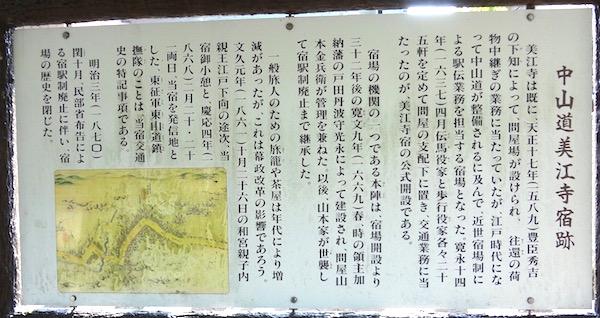 中山道美江寺宿跡
美江寺は既に、天正十七年(一五八九)豊臣秀吉
の下知によって、問屋場が設けられ、往還の荷
物中継ぎの業務に当たっていたが、江戸時代にな
って中山道が整備されるに及んで、近世宿場制に
よる駅伝業務を担当する宿場となった。寛永十四
年(一六三七)四月伝馬役家と歩行役家各々二十
五軒を定めて問屋の支配下に置き、交通業務に当
たったのが、美江寺宿の公式開設である。
宿場の機関の一つである本陣は、宿場開設より
三十二年後の寛文九年(一六六九)春、時の領主加
納藩の戸田丹波守光永によって建設され、問屋山
本金兵衛が管理を兼ねた。以後、山本家が世襲し
て宿駅制廃止まで継承した。
一般旅人のための旅籠や茶屋は年代により増
減があったが、これは幕政改革の影響であろう。
文久元年(一八六一)十月二十六日の和宮親子内
親王江戸下向の途次、当
宿御小憩と、慶応四年(一
八六八)二月二十一、二十
二両日、当宿を発信地と
した、東征軍東山道鎮
撫隊のことは、当宿交通
史の特記事項である。
明治三年(一八七〇)
閏十月、民部省布告によ
る宿駅制廃止に伴い、宿
場の歴史を閉じた。